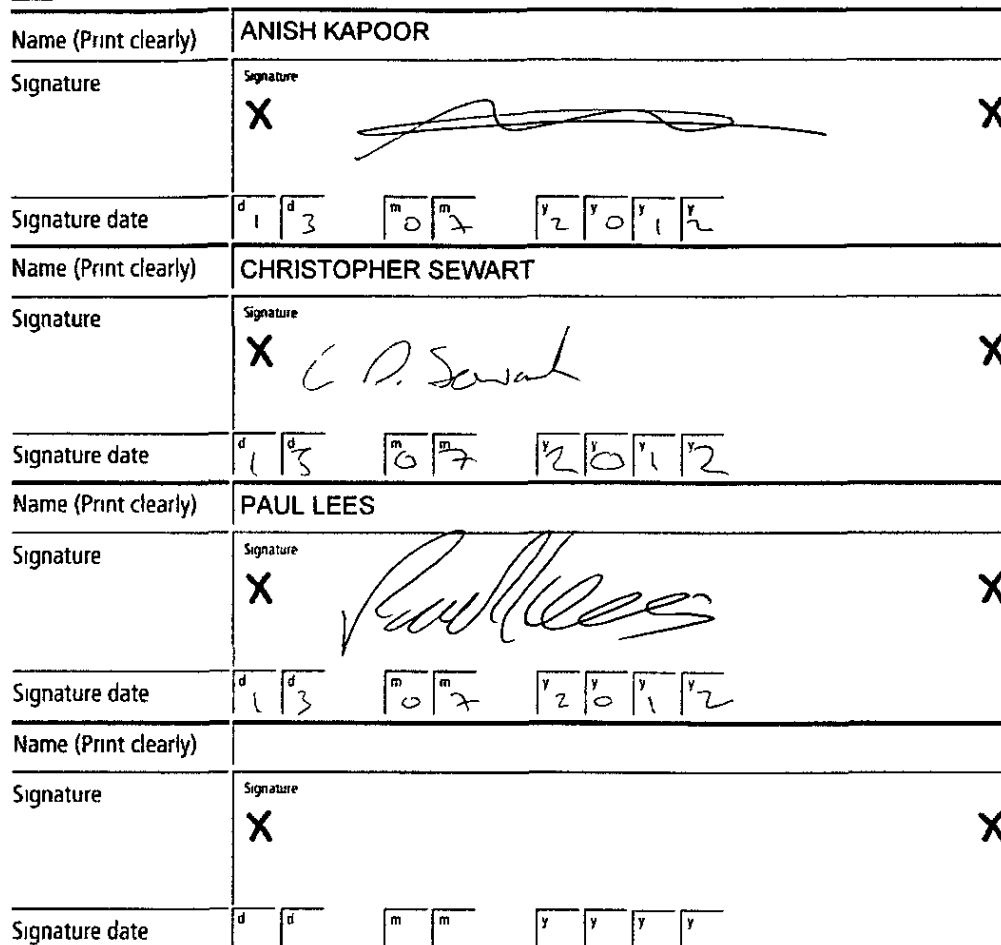 Name (Print clearly) ANISH KAPOOR
Signature Signature
X X
Signature date d 1 d 3 m 0 m 7 y 2 y 0 y 1 y 2
Name (Print clearly) CHRISTOPHER SEWART
Signature Signature
X C P. Sewart X
Signature date d 1 d 3 m 0 m 7 y 2 y 0 y 1 y 2
Name (Print clearly) PAUL LEES
Signature Signature
X Paul Lees X
Signature date d 1 d 3 m 0 m 7 y 2 y 0 y 1 y 2
Name (Print clearly)
Signature Signature
X X
Signature date d d m m y y y y